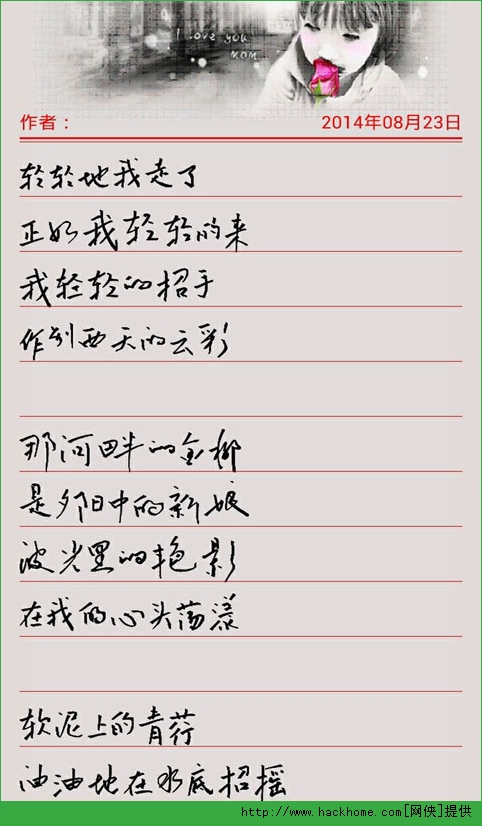 I love you
mom...
作者： 2014年08月23日
轻轻地我走了
正如我轻轻的来
我轻轻的招手
作别西天的云彩
那河畔的金柳
是夕阳中的新娘
波光里的艳影
在我的心头荡漾
软泥上的青荇
油油地在水底招摇
http://www.hackhome.com[网侠]提供